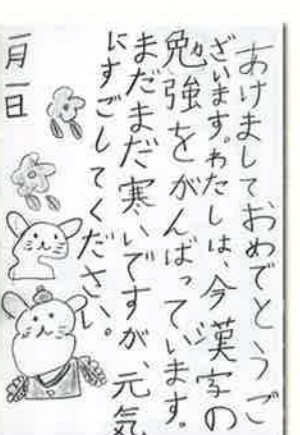 あけましておめでとうご
ざいます。わたしは、今漢字の
勉強をがんばっています。
まだまだ寒いですが、元気
にすごしてください。
一月一日